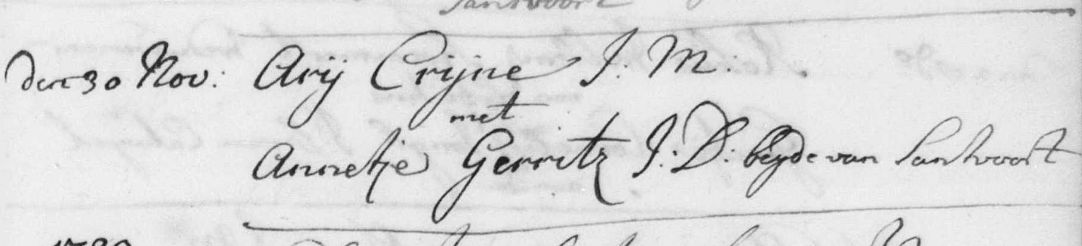 Santvoort
den 30 Nov: Arij Crijne J. M.
met
Annetje Gerritz J: D: beyde van Santvoort